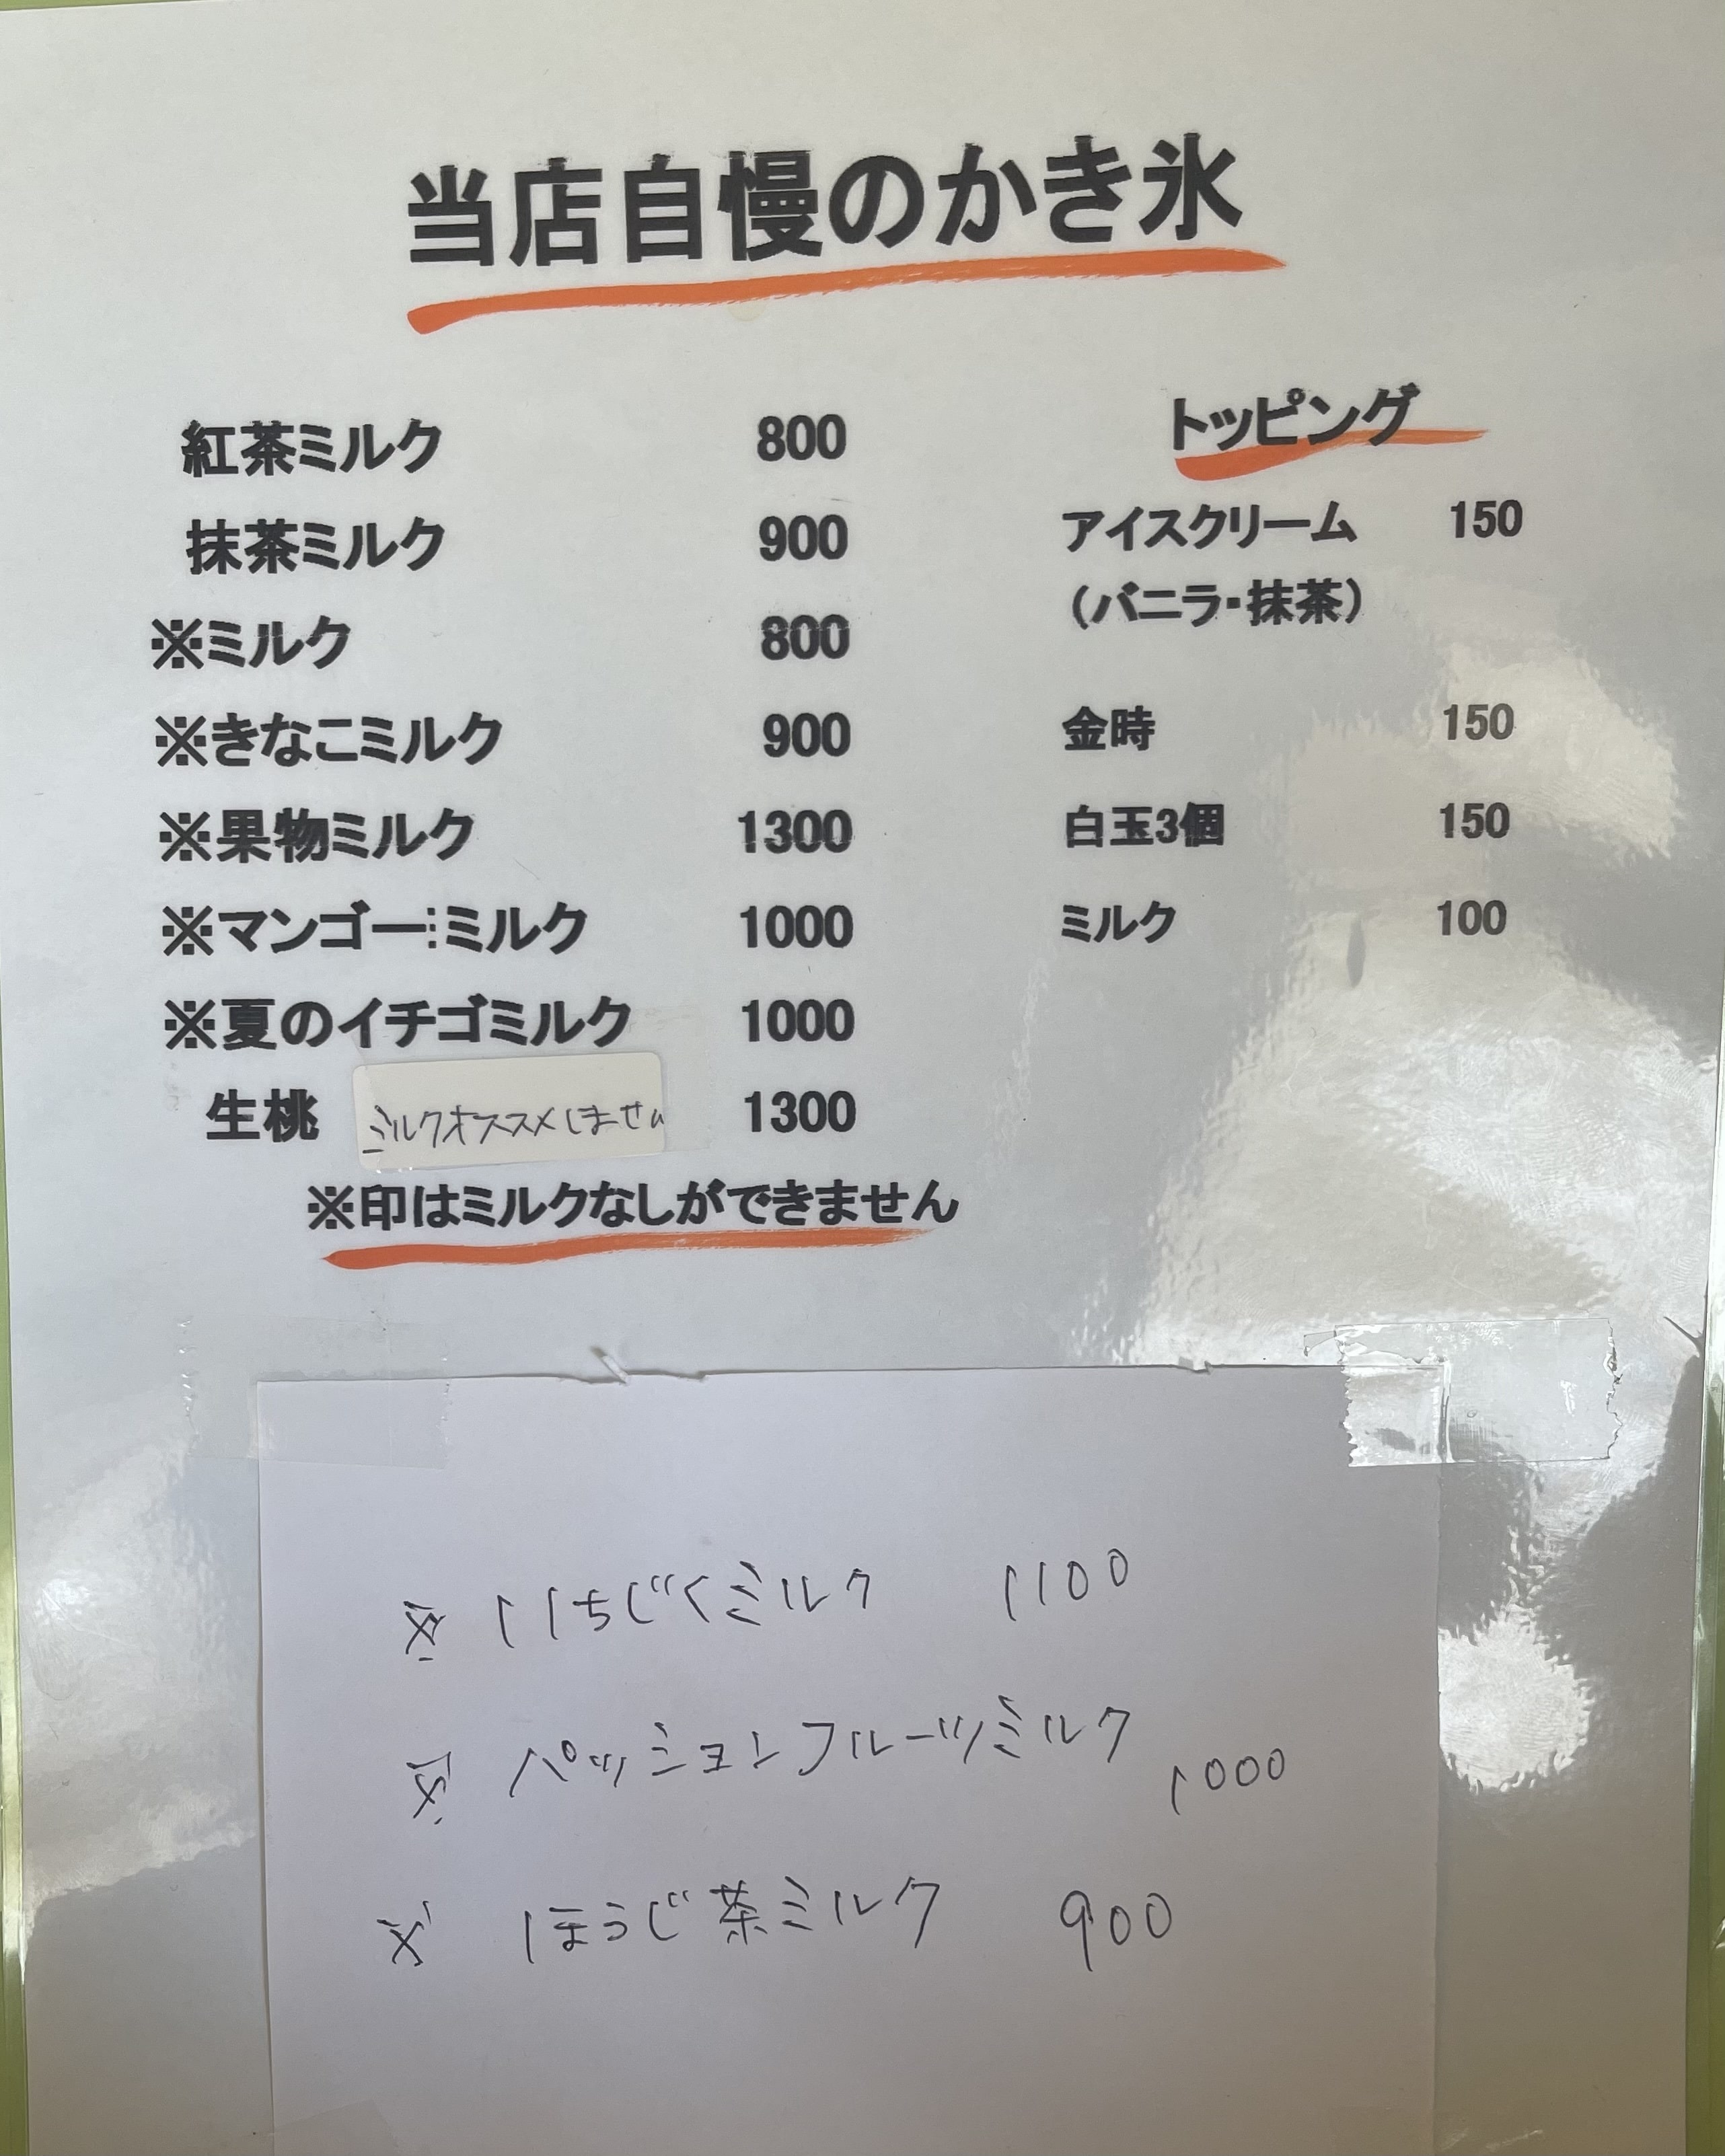 当店自慢のかき氷
紅茶ミルク 800
抹茶ミルク 900
※ミルク 800
※きなこミルク 900
※果物ミルク 1300
※マンゴーミルク 1000
※夏のイチゴミルク 1000
生桃 ミルクオススメしません 1300
※印はミルクなしができません
トッピング
アイスクリーム 150
(バニラ・抹茶)
金時 150
白玉3個 150
ミルク 100
※ いちじくミルク 1100
※ パッションフルーツミルク 1000
※ ほうじ茶ミルク 900